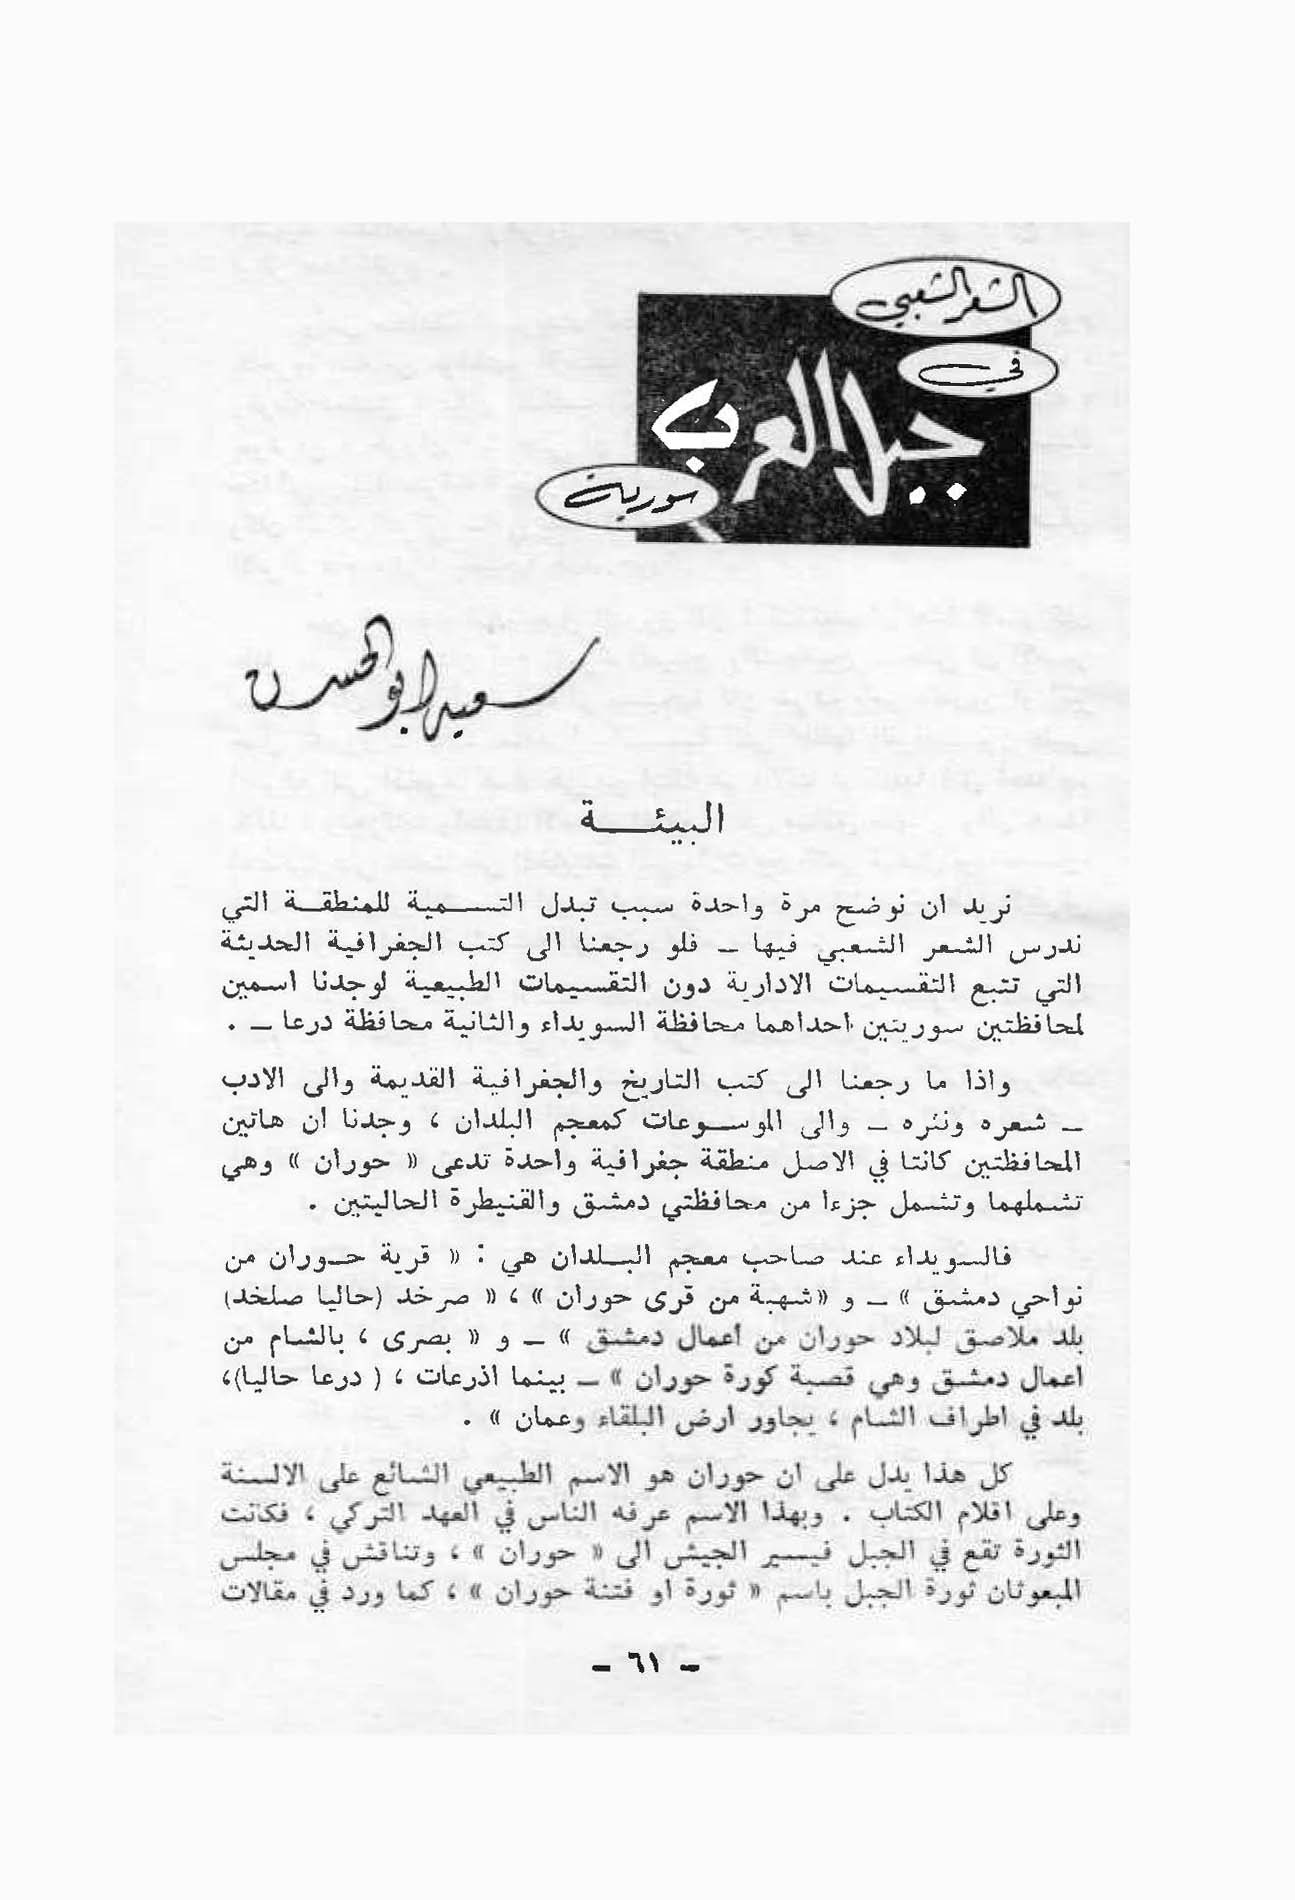 الشعر الشعبي
في
جبل العرب
سورية
سعيد ابو الحسن
البيئـــة
نريد ان نوضح مرة واحدة سبب تبدل التســمية للمنطقــة التي
ندرس الشعر الشعبي فيها – فلو رجعنا الى كتب الجغرافية الحديثة
التي تتبع التقسيمات الادارية دون التقسيمات الطبيعية لوجدنا اسمين
لمحافظتين سوريتين احداهما محافظة السويداء والثانية محافظة درعا – .
واذا ما رجعنا الى كتب التاريخ والجغرافية القديمة والى الادب
– شعره ونثره – والى الموســوعات كمعجم البلدان ، وجدنا ان هاتين
المحافظتين كانتا في الاصل منطقة جغرافية واحدة تدعى « حوران » وهي
تشملهما وتشمل جزءا من محافظتي دمشق والقنيطرة الحاليتين .
فالسويداء عند صاحب معجم البــلدان هي : « قرية حــوران من
نواحي دمشق » – و «شهبة من قرى حوران » ، « صرخد (حاليا صلخد)
بلد ملاصق لبلاد حوران من أعمال دمشق » – و « بصرى ، بالشام من
اعمال دمشق وهي قصبة كورة حوران » – بينما اذرعات ، ( درعا حاليا)،
بلد في اطراف الشام ، يجاور ارض البلقاء وعمان » .
كل هذا يدل على ان حوران هو الاسم الطبيعي الشائع على الالسنة
وعلى اقلام الكتاب . وبهذا الاسم عرفه الناس في العهد التركي ، فكانت
الثورة تقع في الجبل فيسير الجيش الى « حوران » ، وتناقش في مجلس
المبعوثان ثورة الجبل باسم « ثورة او فتنة حوران » ، كما ورد في مقالات
– ٦١ –